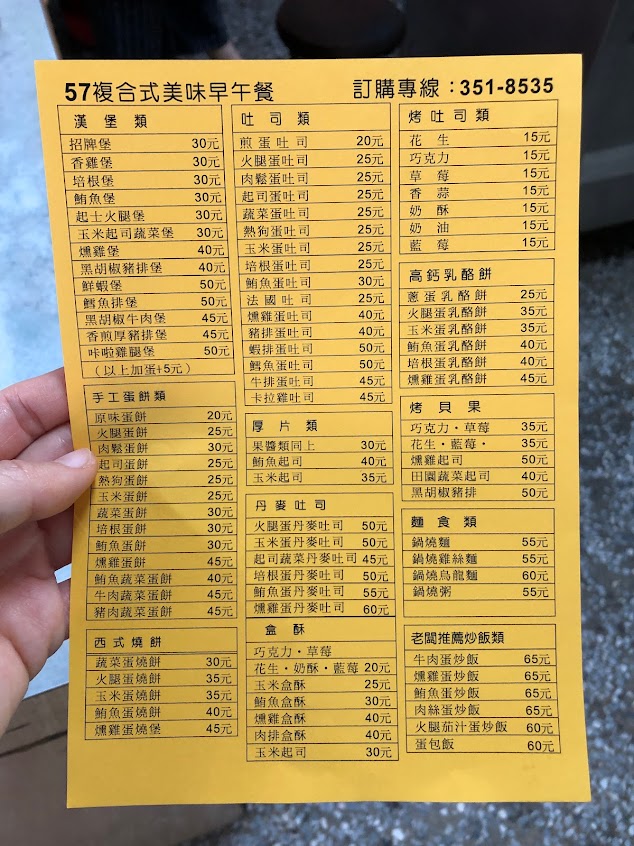 57複合式美味早午餐 訂購專線：351-8535
漢堡類
招牌堡 30元
香雞堡 30元
培根堡 30元
鮪魚堡 30元
起士火腿堡 30元
玉米起司蔬菜堡 30元
燻雞堡 40元
黑胡椒豬排堡 40元
鮮蝦堡 50元
鱈魚排堡 50元
黑胡椒牛肉堡 45元
香煎厚豬排堡 45元
咔啦雞腿堡 50元
（以上加蛋+5元）
手工蛋餅類
原味蛋餅 20元
火腿蛋餅 25元
肉鬆蛋餅 30元
起司蛋餅 25元
熱狗蛋餅 25元
玉米蛋餅 25元
蔬菜蛋餅 30元
培根蛋餅 30元
鮪魚蛋餅 30元
燻雞蛋餅 40元
鮪魚蔬菜蛋餅 40元
牛肉蔬菜蛋餅 45元
豬肉蔬菜蛋餅 45元
西式燒餅
蔬菜蛋燒餅 30元
火腿蛋燒餅 35元
玉米蛋燒餅 35元
鮪魚蛋燒餅 40元
燻雞蛋燒堡 45元
吐司類
煎蛋吐司 20元
火腿蛋吐司 25元
肉鬆蛋吐司 25元
起司蛋吐司 25元
蔬菜蛋吐司 25元
熱狗蛋吐司 25元
玉米蛋吐司 25元
培根蛋吐司 25元
鮪魚蛋吐司 30元
法國吐司 25元
燻雞蛋吐司 40元
豬排蛋吐司 40元
蝦排蛋吐司 50元
鱈魚蛋吐司 50元
牛排蛋吐司 45元
卡拉雞吐司 45元
厚片類
果醬類同上 30元
鮪魚起司 40元
玉米起司 35元
丹麥吐司
火腿蛋丹麥吐司 50元
玉米蛋丹麥吐司 50元
起司蔬菜丹麥吐司 45元
培根蛋丹麥吐司 50元
鮪魚蛋丹麥吐司 55元
燻雞蛋丹麥吐司 60元
盒酥
巧克力・草莓
花生・奶酥・藍莓 20元
玉米盒酥 25元
鮪魚盒酥 30元
燻雞盒酥 40元
肉排盒酥 40元
玉米起司 30元
烤吐司類
花生 15元
巧克力 15元
草莓 15元
香蒜 15元
奶酥 15元
奶油 15元
藍莓 15元
高鈣乳酪餅
蔥蛋乳酪餅 25元
火腿蛋乳酪餅 35元
玉米蛋乳酪餅 35元
鮪魚蛋乳酪餅 40元
培根蛋乳酪餅 40元
燻雞蛋乳酪餅 45元
烤貝果
巧克力・草莓 35元
花生・藍莓・ 35元
燻雞起司 50元
田園蔬菜起司 40元
黑胡椒豬排 50元
麵食類
鍋燒麵 55元
鍋燒雞絲麵 55元
鍋燒烏龍麵 60元
鍋燒粥 55元
老闆推薦炒飯類
牛肉蛋炒飯 65元
燻雞蛋炒飯 65元
鮪魚蛋炒飯 65元
肉絲蛋炒飯 65元
火腿茄汁蛋炒飯 60元
蛋包飯 60元